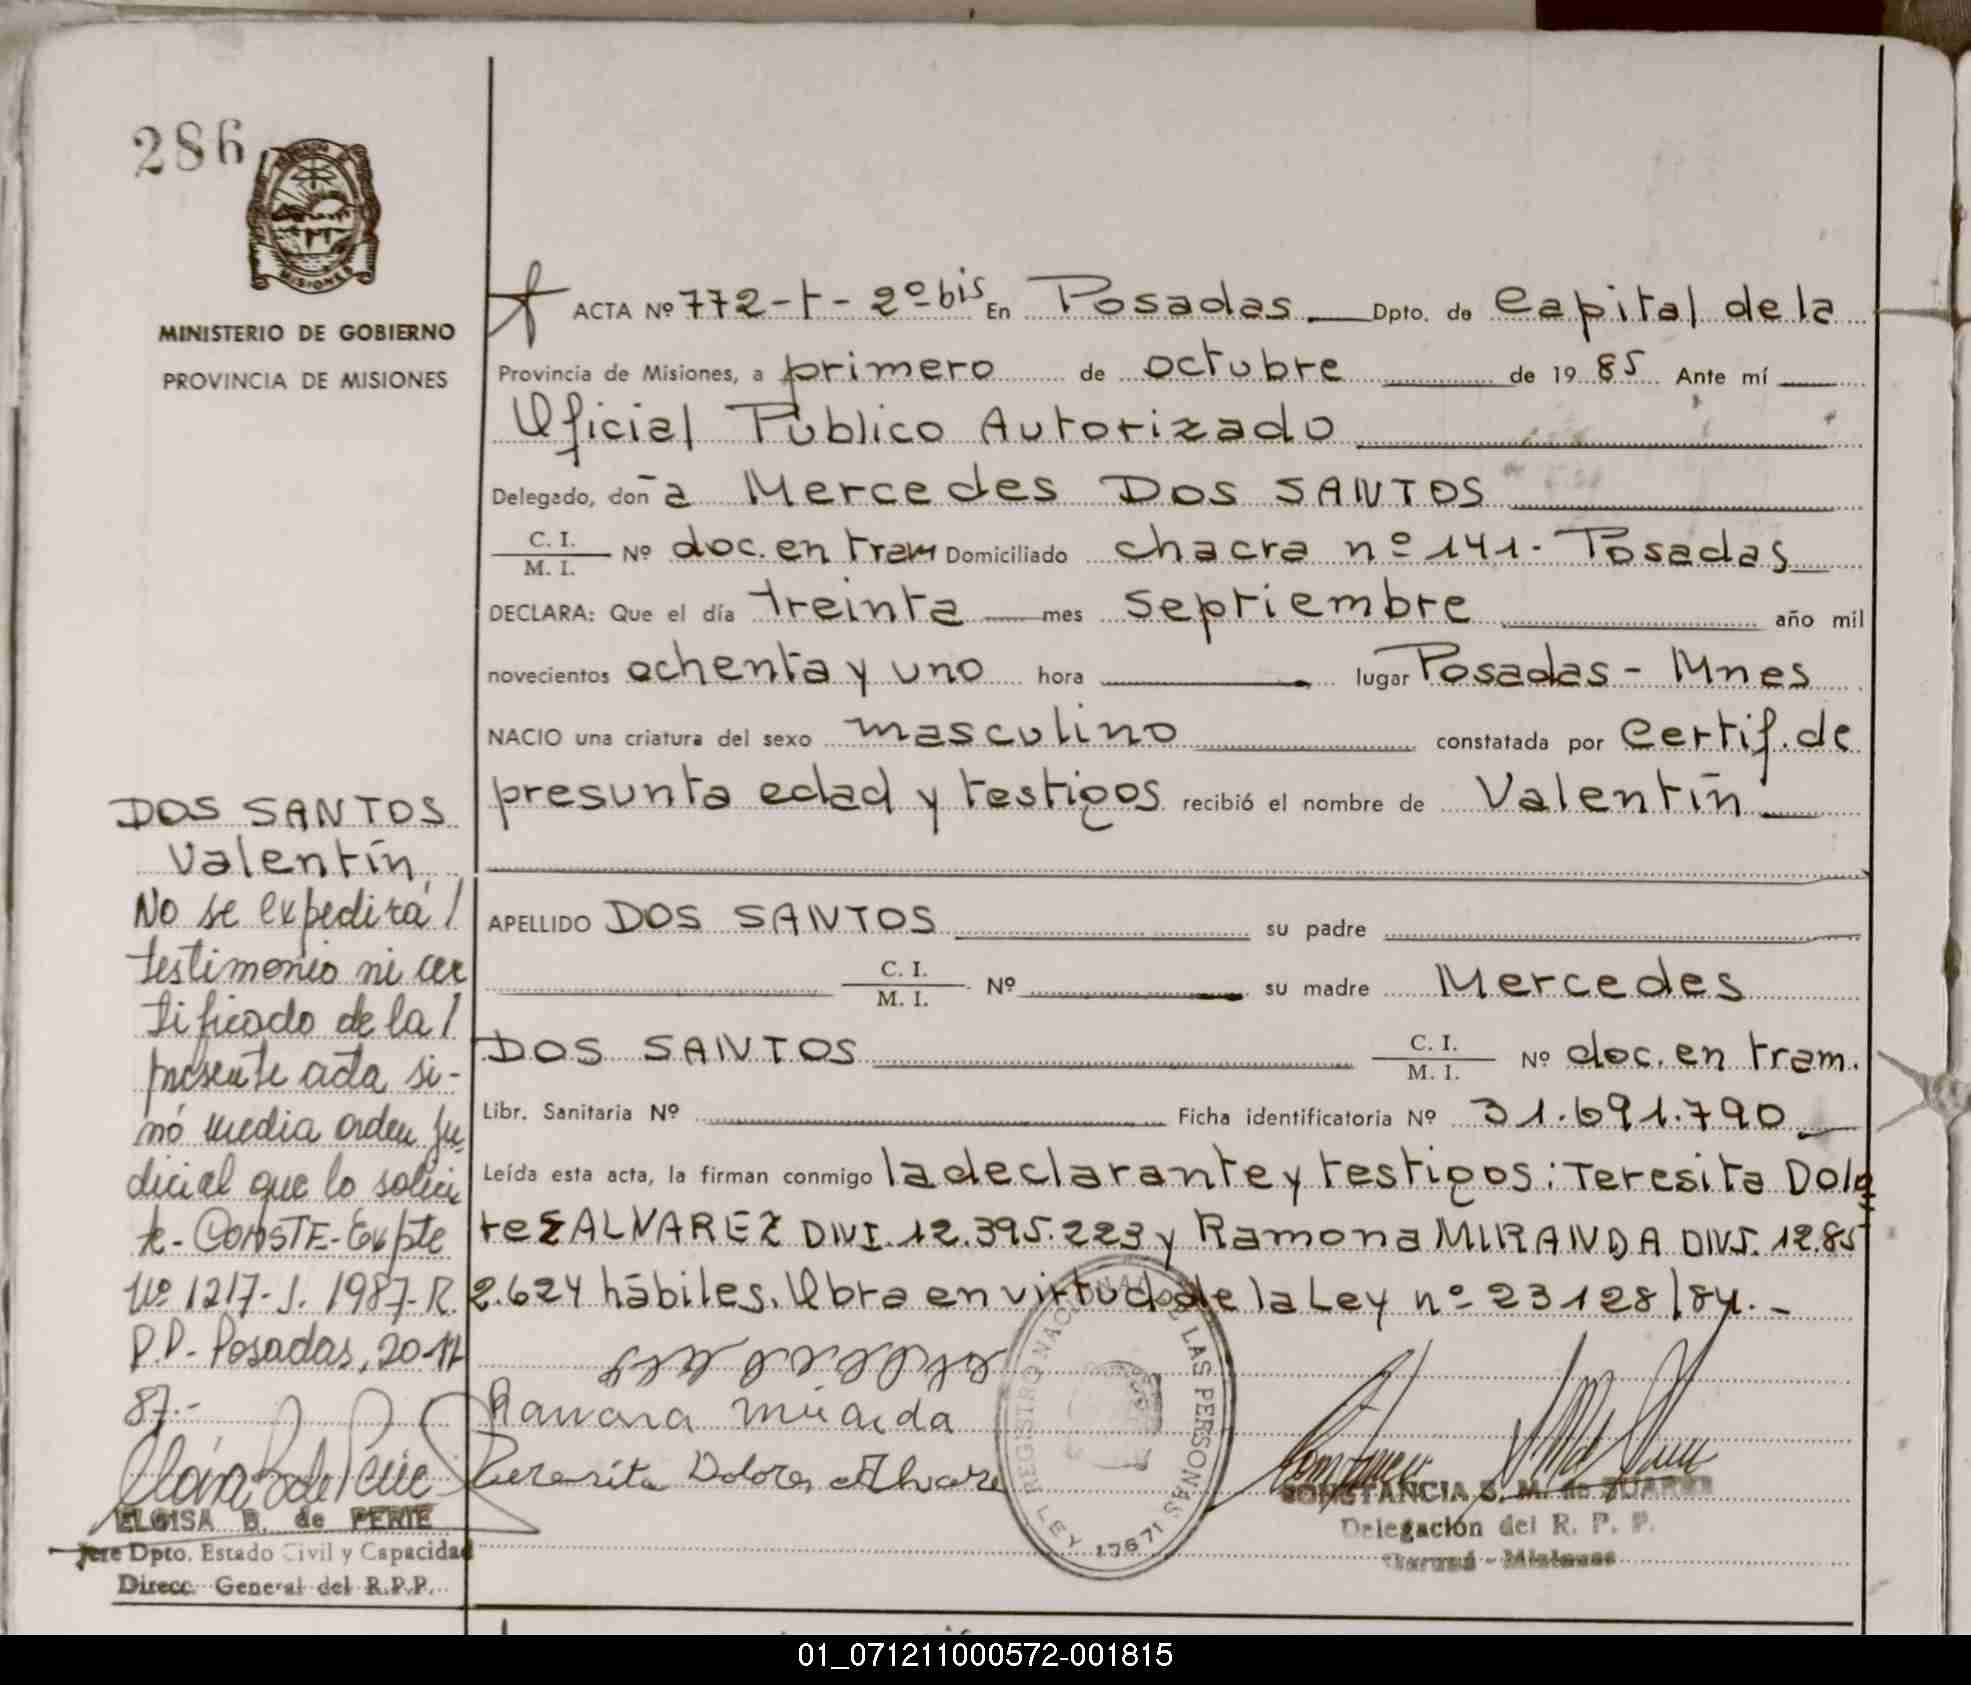 286
MISIONES
MINISTERIO DE GOBIERNO
PROVINCIA DE MISIONES
ACTA Nº 772-t-2º bis En Posadas Dpto. de Capital de la
Provincia de Misiones, a primero de octubre de 1985 Ante mí
Oficial Público Autorizado
Delegado, doña Mercedes DOS SANTOS
C. I.
M. I. Nº doc. en tram Domiciliado chacra nº 141 - Posadas
DECLARA: Que el día treinta mes septiembre año mil
novecientos ochenta y uno hora lugar Posadas - Mnes
NACIO una criatura del sexo masculino constatada por certif. de
presunta edad y testigos recibió el nombre de Valentín
APELLIDO DOS SANTOS su padre
C. I.
M. I. Nº su madre Mercedes
DOS SANTOS C. I.
M. I. Nº doc. en tram.
Libr. Sanitaria Nº Ficha identificatoria Nº 31.691.790
Leída esta acta, la firman conmigo la declarante y testigos: Teresita Dolo
res ALVAREZ DNI. 12.395.223 y Ramona MIRANDA DNI. 12.85
2.624 hábiles. Obra en virtud de la Ley nº 23128/84.-
Ramona Miranda
Teresita Dolores Alvare
REGISTRO NACIONAL DE LAS PERSONAS
LEY 17671
CONSTANCIA S. M. de
Delegación del R. P. P.
DOS SANTOS
Valentín
No se expedirá /
testimonio ni cer
tificado de la /
presente acta si-
nó media orden ju
dicial que lo solici
te - CONSTE - Expte
Nº 1217-J. 1987-R.
P.P. Posadas, 20-11
87.-
ELOISA B. de PERIE
Jefe Dpto. Estado Civil y Capacidad
Direcc. General del R.P.P.
01_071211000572-001815